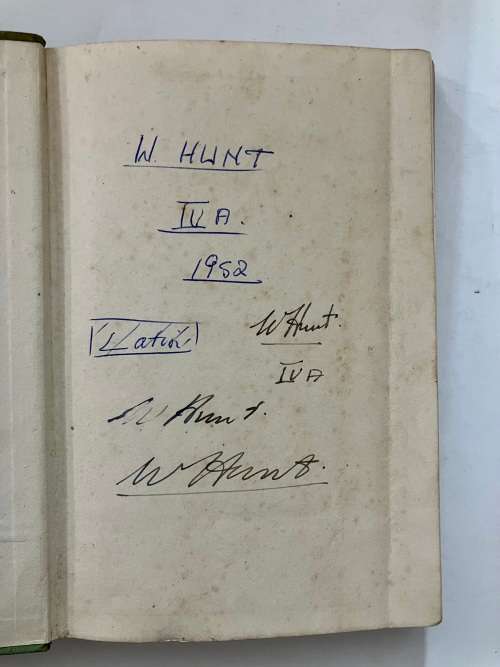 W. HUNT
IVA.
1952
W Hunt.
IVA
W Hunt.
W Hunt.